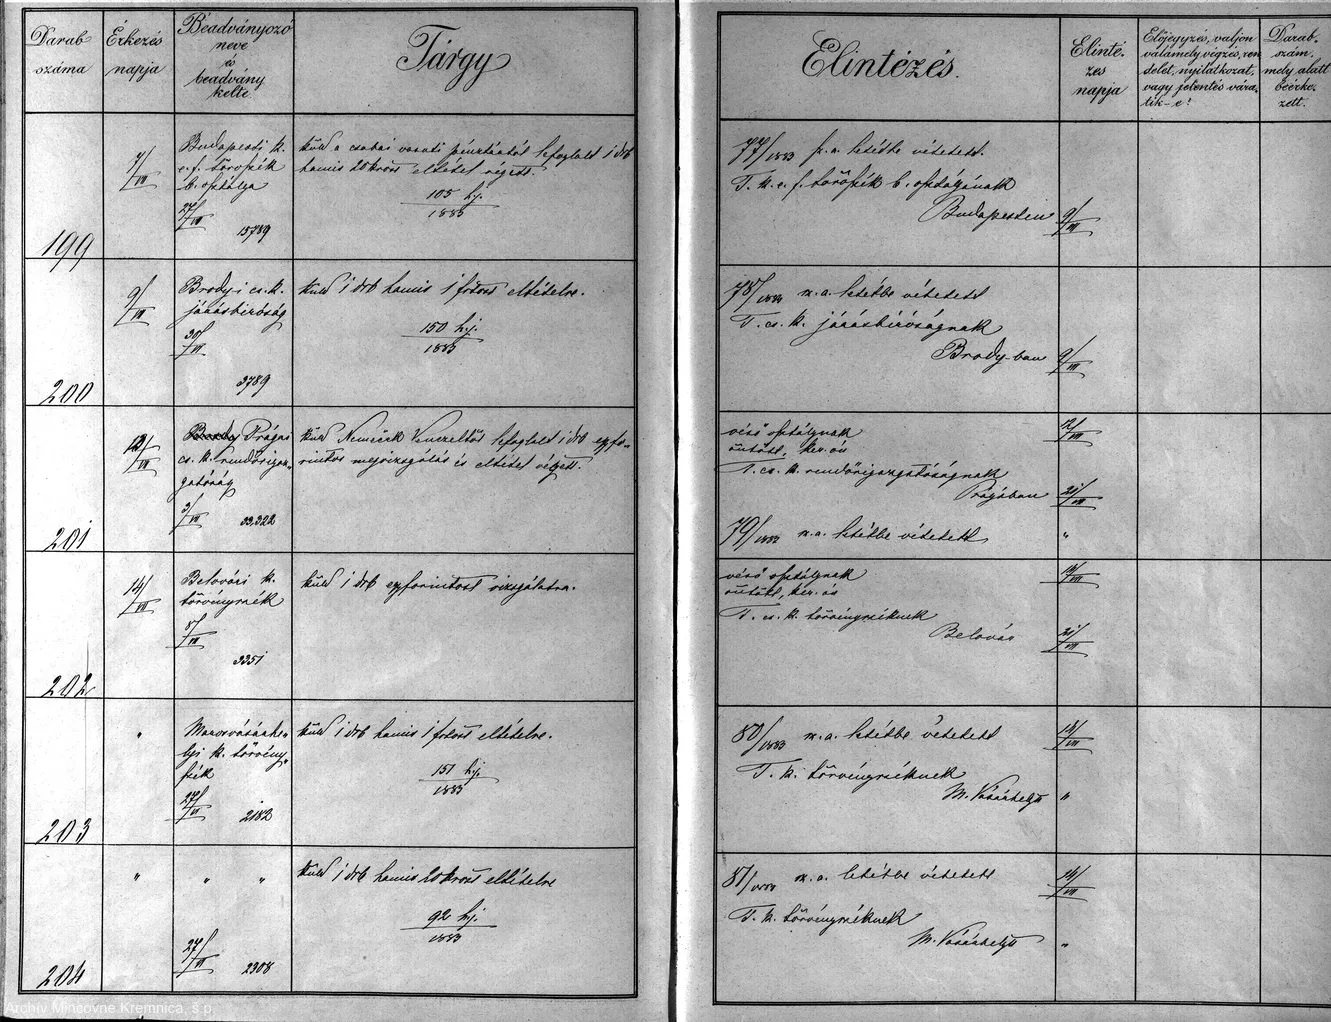 Darab száma
Érkezés napja
Beadványozó neve és beadvány kelte.
Tárgy
Elintézés.
Elintézés napja
Előjegyzés, valjon valamely végzés, rendelet, nyilatkozat, vagy jelentés váratik-e?
Darabszám, mely alatt beérkezett.
199
7/VII
Budapesti k.
e. f. törvszék
b. osztálya
27/VI
15789
küld a csabai vasuti pénztártól lefoglalt 1 drb
hamis 20 kros eltétel végett.
105 hj.
1883
77/1883 n. a. letétbe vétetett.
T. k. e. f. törvszék b. osztályának
Budapesten
9/VII
200
9/VII
Brody-i cs. k.
járásbiróság
30/VI
3789
küld 1 drb hamis 1 frtost eltételre.
150 hj.
1883
78/1883 n. a. letétbe vétetett
T. cs. k. járásbiróságnak
Brody-ban
9/VII
201
12/VII
Brody Prágai
cs. k. rendörigaz-
gatóság
3/VII
33,322
küld Nemecek Venczeltől lefoglalt 1 drb egyfo-
rintos megvizsgálás és eltétel végett.
verő osztálynak
12/VII
T. cs. k. rendörigazgatóságnak
Prágában
21/VII
79/1883 n. a. letétbe vétetett
"
202
14/VII
Belovári k.
törvényszék
8/VII
3351
küld 1 drb egyforintost vizsgálatra.
verő osztálynak
14/VII
T. cs. k. törvényszéknek
Belovár
21/VII
203
"
Marosvásárhe-
lyi k. törvény-
szék
27/VI
2182
küld 1 drb hamis 1 frtost eltételre.
151 hj.
1883
80/1883 n. a. letétbe vétetett
14/VII
T. k. törvényszéknek
M. Vásárhelyt
"
204
"
" "
27/VI
2308
küld 1 drb hamis 20 krost eltételre
92 hj.
1883
81/1883 n. a. letétbe vétetett
14/VII
T. k. törvényszéknek
M. Vásárhelyt
"
Archív Mincovne Kremnica, š.p.